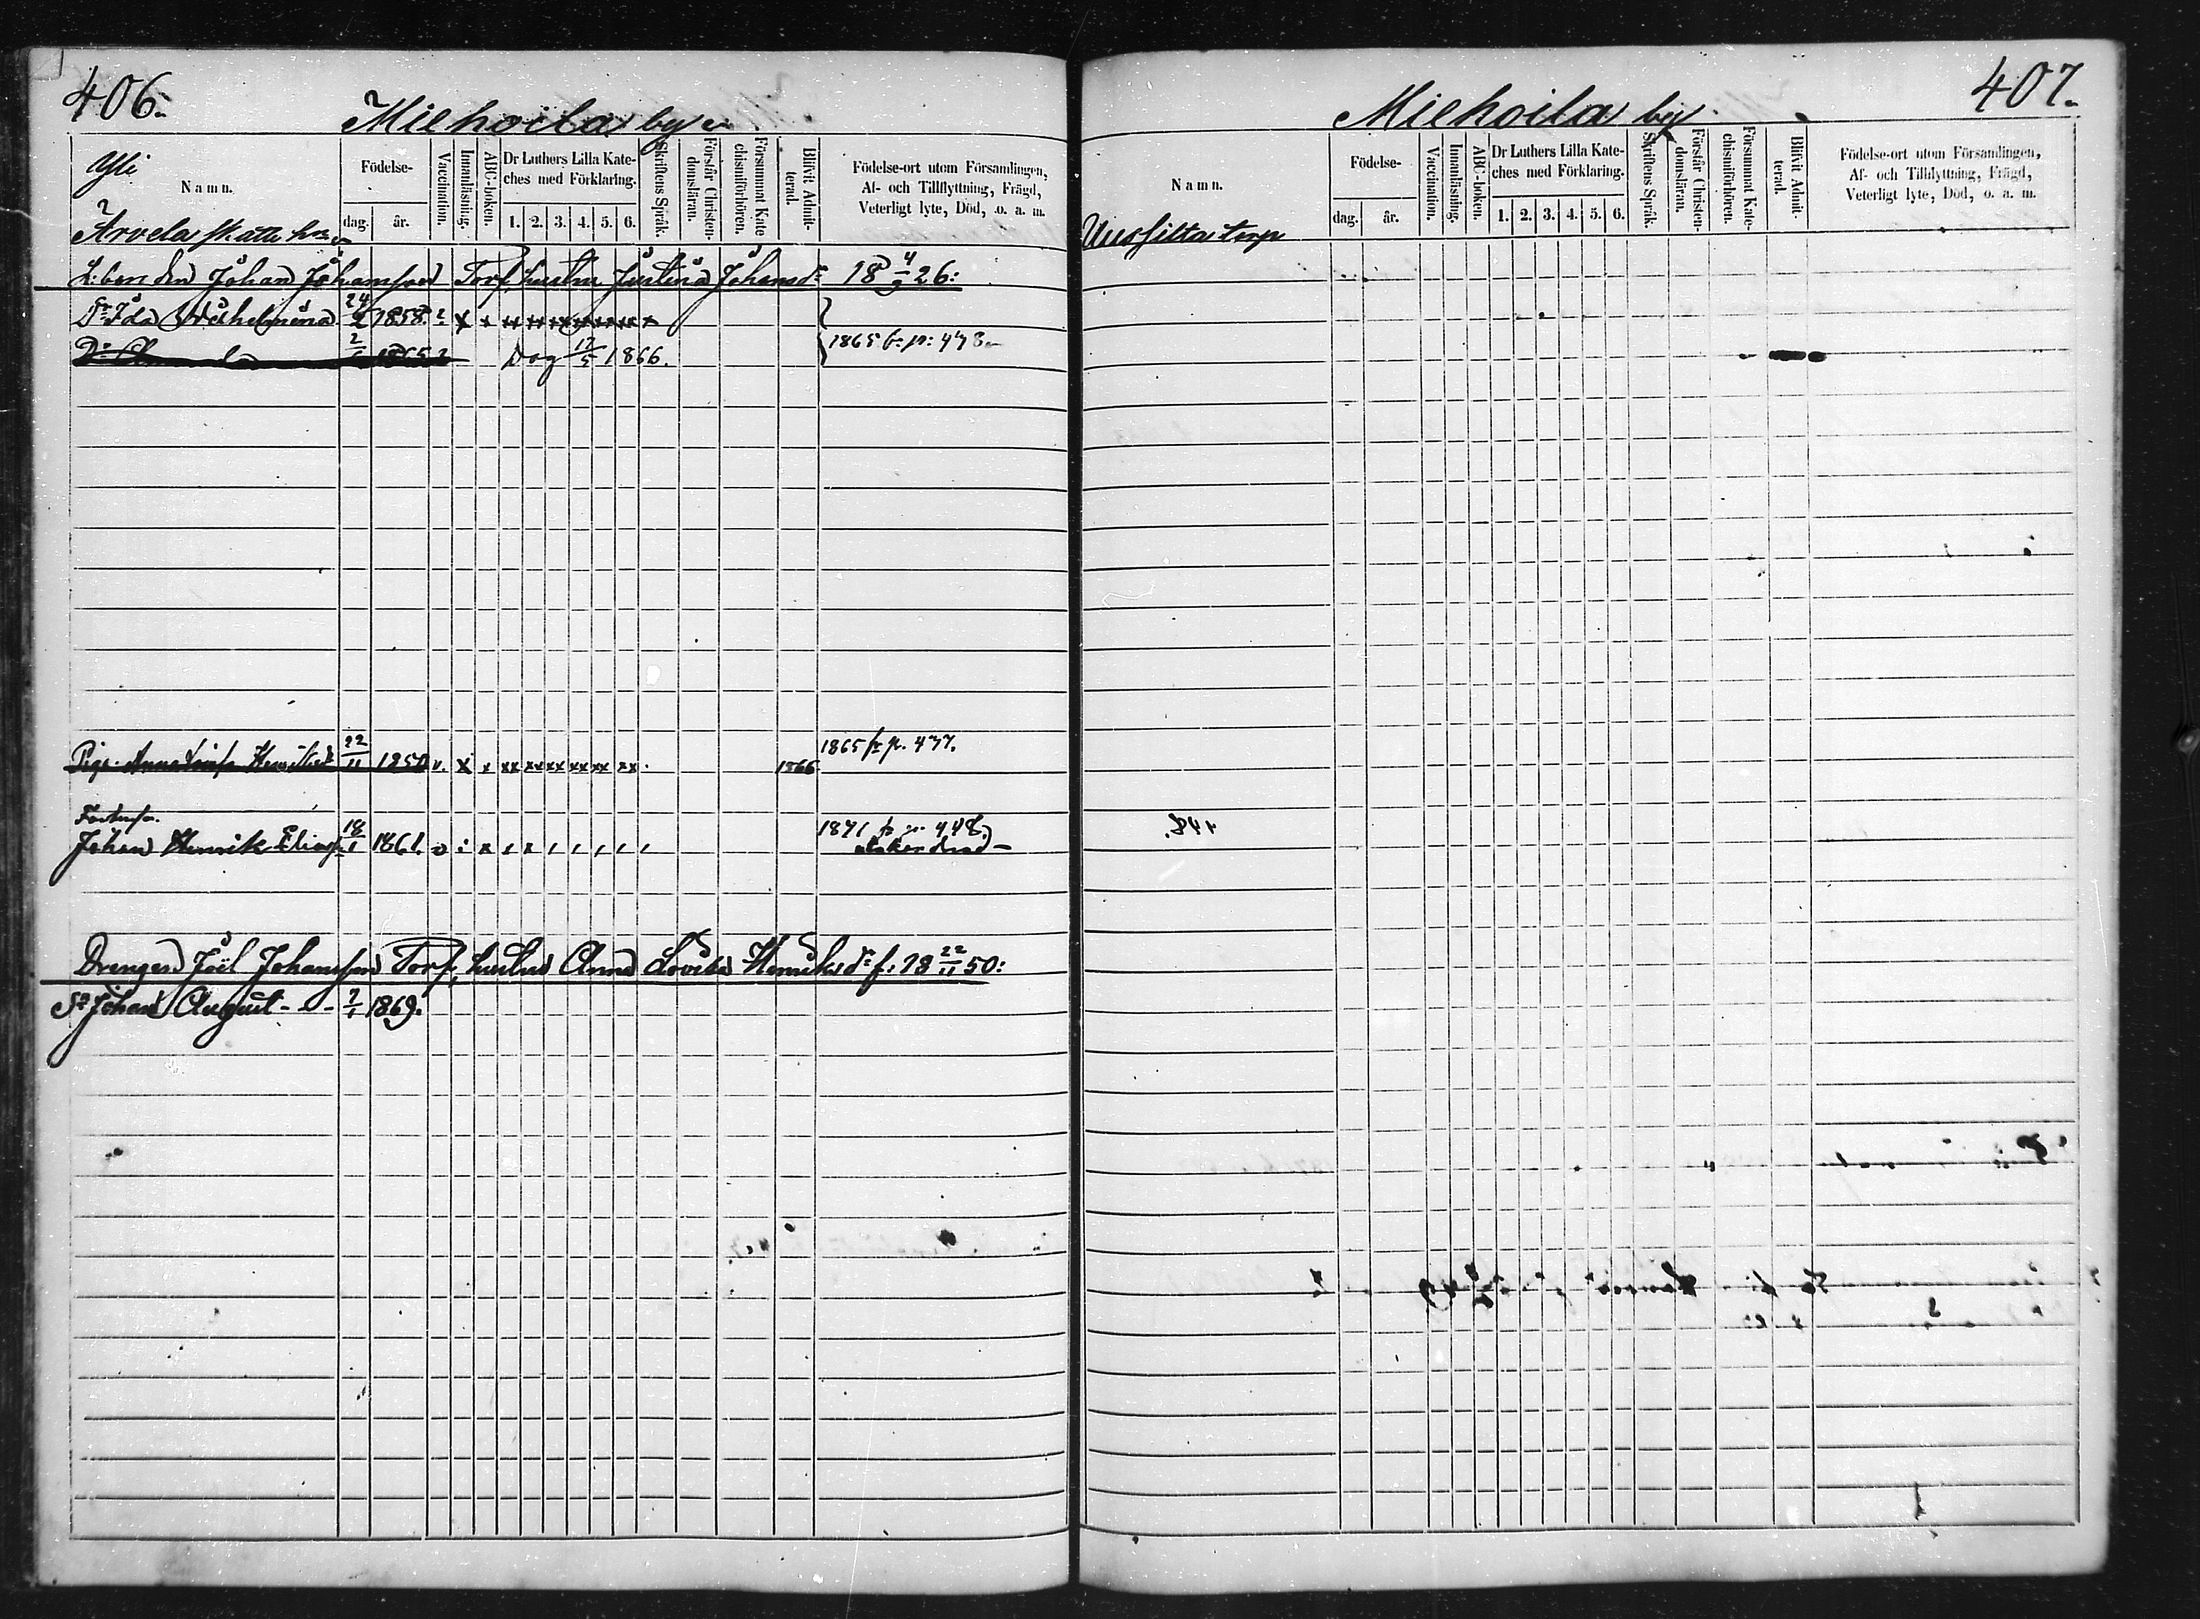 406.
Miehoila by
Yli
Namn.
Födelse-
dag.
år.
Vaccination.
Innanläsning.
ABC-boken.
Dr Luthers Lilla Kate-
ches med Förklaring.
1. 2. 3. 4. 5. 6.
Skriftens Språk.
Förstår Christen-
domsläran.
Försummat Kate
chismiförhören.
Blifvit Admit-
terad.
Födelse-ort utom Församlingen,
Af- och Tillflyttning, Frägd,
Veterligt lyte, Död, o. a. m.
Arvela skatte
Johan Johansson Torp. hustru Justina Johansdr 18 4/9 26:
Dr Ida Wilhelmina 24/2 1858. v x x xx xx xx xx xx xx
2/1 1865 Dog 17/5 1866. 1865 fr. p: 478
1865 fr p. 477.
Piga Anna Lovisa Henriksdr 22/11 1850 v. x x xx xx xx xx xx xx. 1866
Johan Henrik Eliass. 18/1 1861. v : x , x , , , , , 1871 fr p. 448.
Drengen Joël Johansson Torp. hustru Anna Lovisa Henriksdr f: 18 22/11 50:
Sn Johan August - v - 7/1 1869.
407.
Miehoila by
Namn.
Födelse-
dag.
år.
Vaccination.
Innanläsning.
ABC-boken.
Dr Luthers Lilla Kate-
ches med Förklaring.
1. 2. 3. 4. 5. 6.
Skriftens Språk.
Förstår Christen-
domsläran.
Försummat Kate-
chismiförhören.
Blifvit Admit-
terad.
Födelse-ort utom Församlingen,
Af- och Tillflyttning, Frägd,
Veterligt lyte, Död, o. a. m.
Uussilta torp